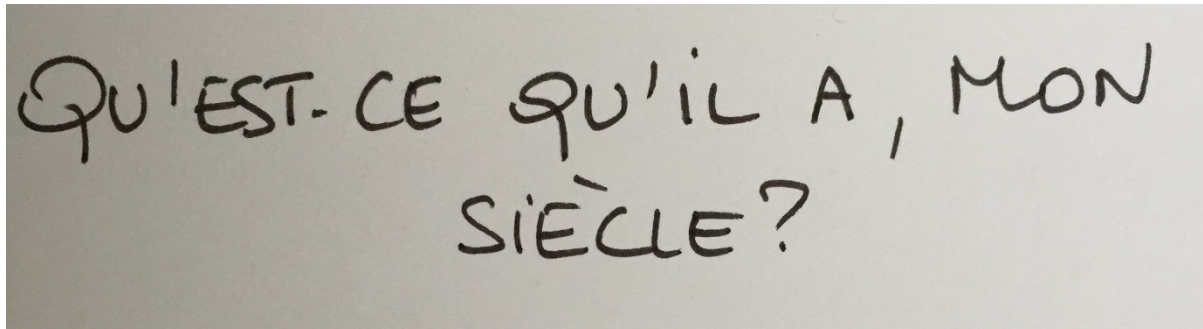 QU'EST-CE QU'IL A, MON
SIÈCLE?